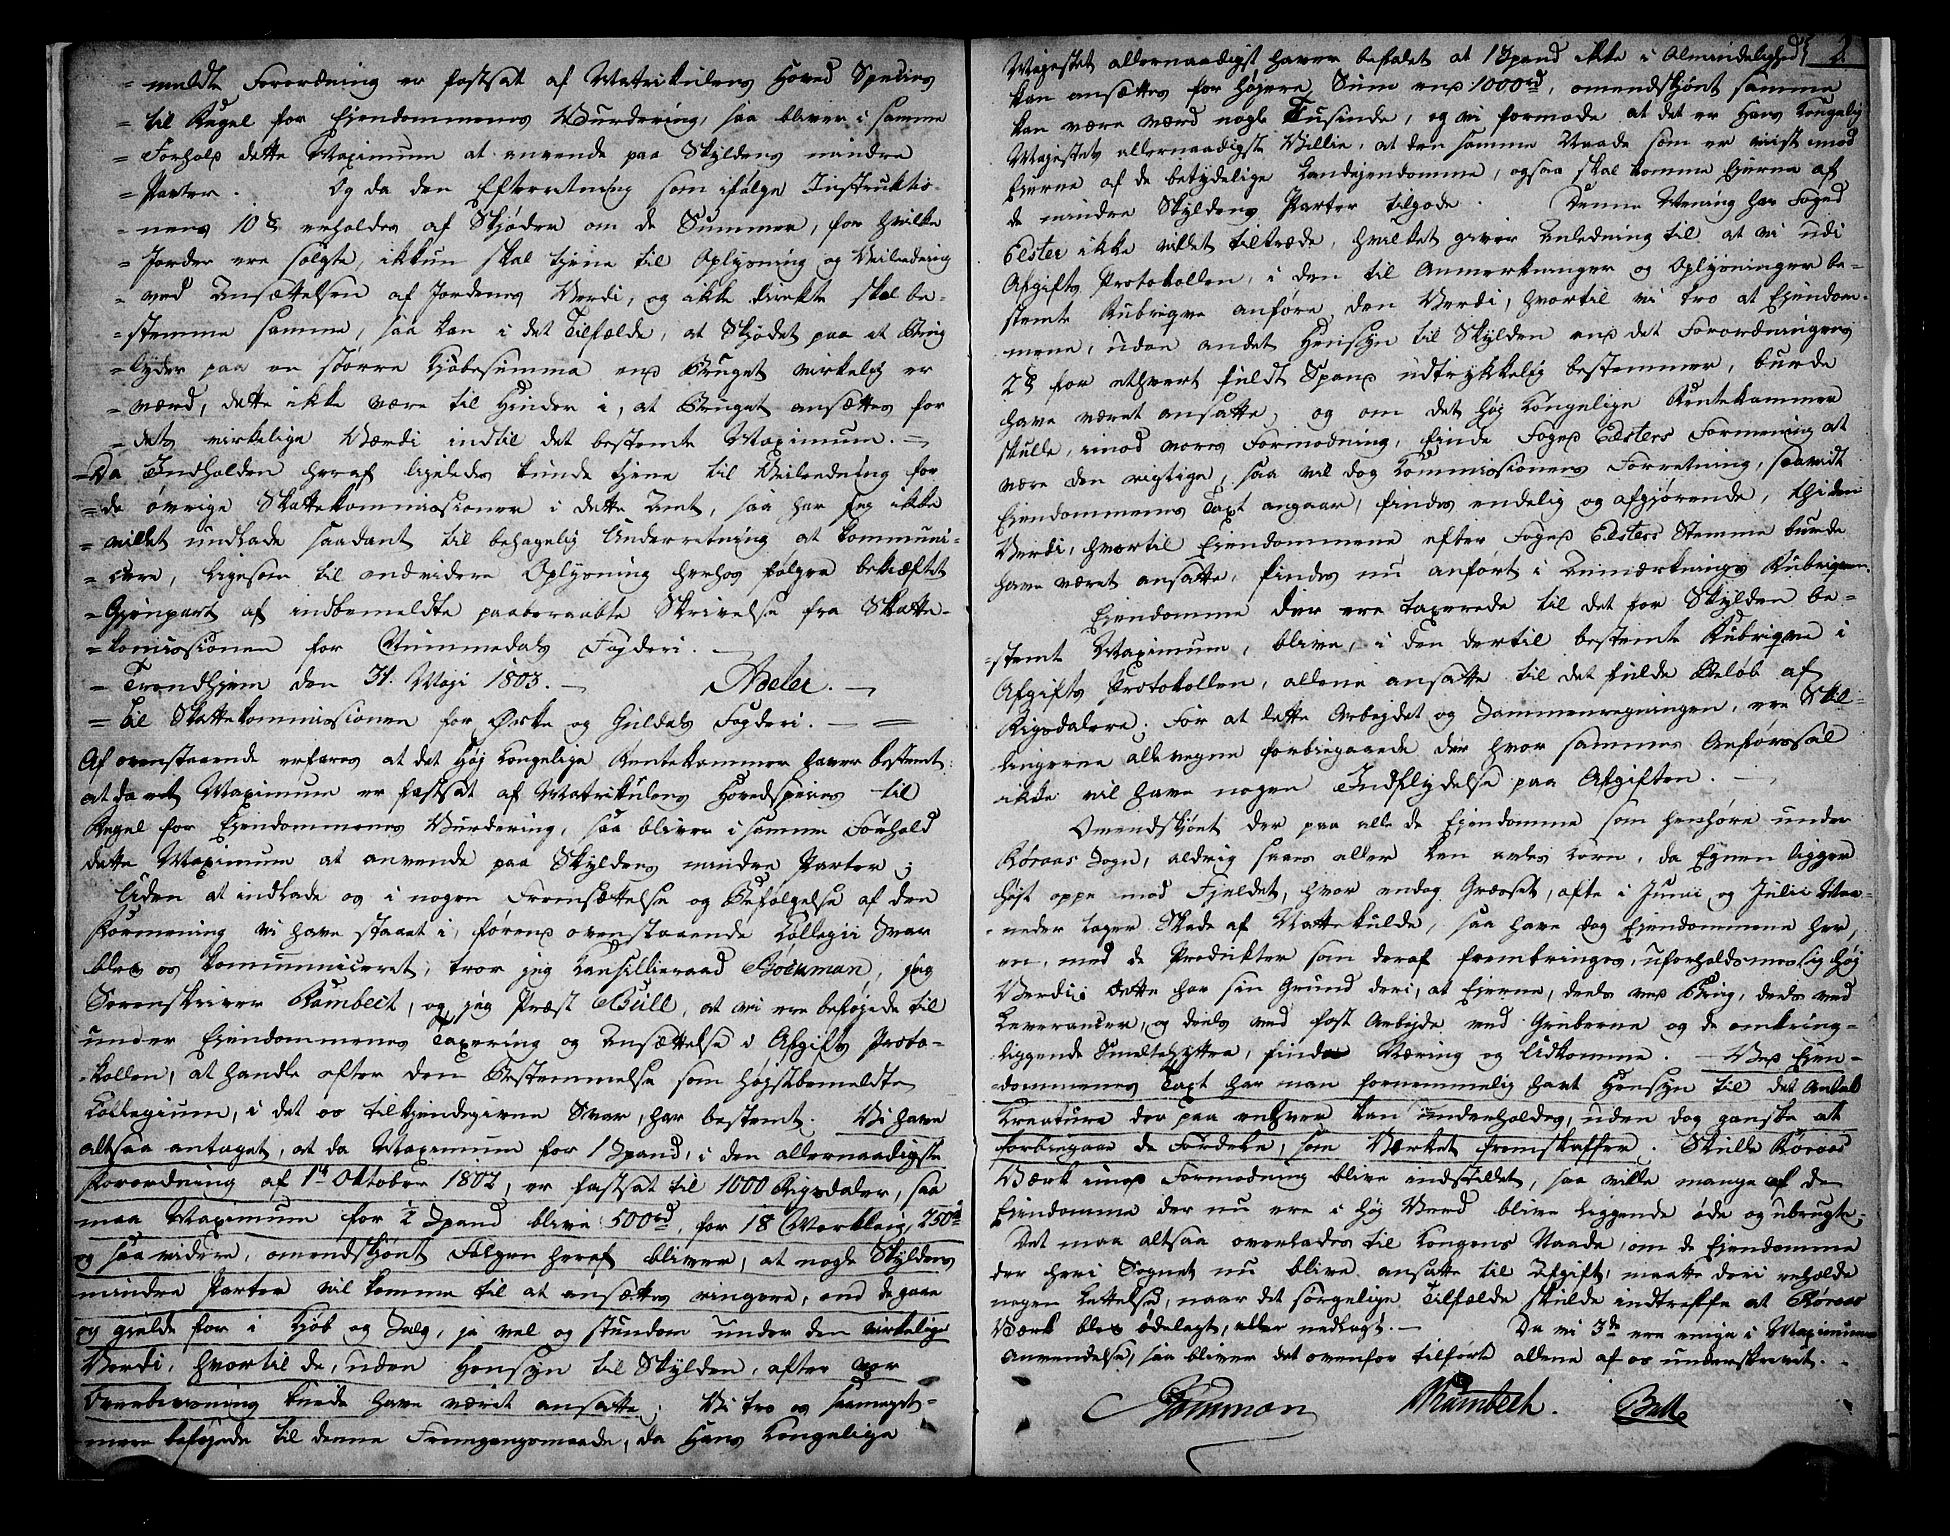 = meldte Forordning er fastsat af Matrikulens Hoved Species
= til Regel for Eiendommenes Vurdering, saa bliver i samme
= Forhold dette Maximum at anvende paa Skyldens mindre
= Parter. Og da den Efterretning som ifølge Instruktio-
= nens 10 § erholdes af Skjøder om de Summer, for hvilke
= Jorder ere solgte, ikkun skal tjene til Oplysning og Veiledning
= ved Ansættelsen af Jordenes Verdi, og ikke direkte skal be-
= stemme samme, saa kan i det Tilfælde, at Skjødet paa et Brug
= lyder paa en større Kjøbesumma end Bruget virkelig er
= værd, dette ikke være til Hinder i, at Bruget ansættes for
= dets virkelige Værdi indtil det bestemte Maximum. =
= Da Indholden heraf ligeledes kunde tjene til Veiledning for
= de øvrige Skattekommissioner i dette Amt, saa har jeg ikke
= villet undlade saadant til behagelig Underretning at kommuni-
= cere, ligesom til andvidere Oplysning herhos følger bekræftet
= Gjenpart af indbemeldte paaberaabte Skrivelse fra Skatte-
= kommissionen for Nummedals Fogderi. -
= Trondhjem den 31. Maji 1803. - Adeler. -
= Til Skattekommissionen for Ørke og Guldals Fogderi. - =
Af ovenstaaende erfares at det Høj Kongelige Rentekammer haver bestemt:
at da et Maximum er fastsat af Matrikulens Hovedspecies til
Regel for Eiendommenes Vurdering, saa bliver i samme Forhold
dette Maximum at anvende paa Skyldens mindre Parter;
Uden at indlade os i nogen Fremsættelse og Befølgelse af den
Formening vi have staaet i, førend ovenstaaende Collegii Svar
blev os kommuniceret, tror jeg Kancellieraad Bouman, jeg
Sorenskriver Rambech, og jeg Præst Bull, at vi ere beføjede til
under Eiendommenes Taxering og Ansættelse i Afgifts Proto-
kollen, at handle efter den Bestemmelse som højstbemeldte
Collegium, i det os tilkjendegivne Svar, har bestemt. Vi have
altsaa antaget, at da Maximum for 1 Spand, i den allernaadigste
Forordning af 1te Oktober 1802, er fastsat til 1000 Rigsdaler, saa
maa Maximum for ½ Spand blive 500 rd, for 18 Marklaug 250 rd
og saa videre, omendskjønt Følgen heraf bliver, at nogle Skyldens
mindre Parter vil komme til at ansættes ringere, end de gaae
og gielde for i Kjøb og Salg, ja vel og stundom under den virkelige
Verdi, hvortil de, uden Hensyn til Skylden, efter vor
Overbevisning burde have været ansatte; Vi tro os saameget-
mere beføjede til denne Fremgangsmaade, da Hans Kongelige
2
Majestet allernaadigst haver befalet at 1 Spand ikke i Almindelighed
kan ansættes for højere Sum end 1000 rd, omendskjønt samme
kan være værd nogle Tusinde, og vi formode at det er Hans Kongelig
Majestets allernaadigste Villie, at den samme Naade som er viist mod
Ejerne af de betydelige Landejendomme, ogsaa skal komme Ejerne af
de mindre Skyldens Parter tilgode. Denne Mening har Foged
Elster ikke villet tiltræde, hvilket giver Anledning til at vi udi
Afgifts Protokollen, i den til Anmerkninger og Oplysninger be-
stemte Rubriqve anføre den Verdi, hvortil vi tro at Ejendom-
mene, uden andet Hensyn til Skylden end det Forordningens
2 § for ethvert fuldt Spand udtrykkelig bestemmer, burde
have været ansatte, og om det høj Kongelige Rentekammer
skulle, imod vores Formodning, finde Foged Elsters Formening at
være den rigtige, saa vil dog Kommissionens Forretning, saavidt
Ejendommenes Taxt angaar, findes endelig og afgjørende, thi den
Verdi, hvortil Ejendommene efter Foged Elsters Stemme burde
have været ansatte, findes nu anført i Anmærknings Rubriqven.
Ejendomme der ere taxerede til det for Skylden be-
= stemte Maximum, blive, i den dertil bestemte Rubriqve i
Afgifts Protokollen, allene ansatte til det fulde Beløb af
Rigsdalere. For at lette Arbejdet og Sammenregningen, ere Skil-
lingerne allevegne forbiegaaede der hvor sammes Anførssel
ikke vil have nogen Indflydelse paa Afgiften. -
Omendskjønt der paa alle de Ejendomme som henhøre under
Røraas Sogn, aldrig saaes eller kan avles Korn, da Egnen ligger
højt oppe mod Fjeldet, hvor endog Græsset, ofte i Junii og Julii Maa-
neder tager Skade af Nattekulde, saa have dog Ejendommene her,
en, med de Produkter som deraf frembringes, uforholdsmæssig høj
Verdi; dette har sin Grund deri, at Ejerne, deels ved Brug, deels ved
Leverancer, og deels ved fast Arbejde ved Gruberne og de omkring-
liggende Smeltehytter, finde Næring og Udkomme. - Ved Ejen-
dommenes Taxt har man fornemmelig havt Hensyn til det Antal
Kreature der paa enhver kan underholdes, uden dog ganske at
forbiegaae de Fordele, som Værket fremskaffer. Skulle Røraas
Værk imod Formodning blive indstillet, saa ville mange af de
Ejendomme der nu ere i høj Verd blive liggende øde og ubrugte,
Det maa altsaa overlades til Kongens Naade, om de Ejendomme
der heri Sognet nu blive ansatte til Afgift, maatte deri erholde
nogen Lettelse, naar det sørgelige Tilfælde skulde indtreffe at Røraas
Værk blev ødelagt, eller nedlagt. - Da vi 3de ere enige i Maximums
Anvendelse, saa bliver det ovenfor tilførte allene af os underskrevet. -
Bouman Rambech. Bull